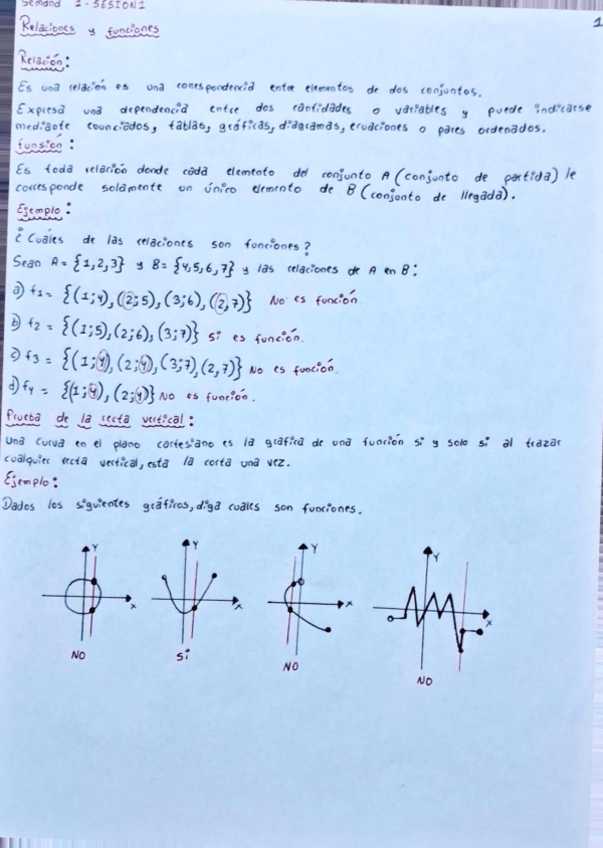 Semana 1 - SESION1
1
Relaciones y funciones
Relación:
Es una relación es una correspondencia entre elementos de dos conjuntos.
Expresa una dependencia entre dos cantidades o variables y puede indicarse
mediante enunciados, tablas, gráficas, diagramas, ecuaciones o pares ordenados.
funsión:
Es toda relación donde cada elemento del conjunto A (conjunto de partida) le
corresponde solamente un único elemento de B (conjunto de llegada).
Ejemplo:
¿Cuáles de las relaciones son funciones?
Sean A = {1,2,3} y B = {4,5,6,7} y las relaciones de A en B:
a) f1 = {(1;4), (2;5), (3;6), (2,7)} No es función.
b) f2 = {(1;5), (2;6), (3;7)} Si es función.
c) f3 = {(1;4), (2;4), (3;7), (2,7)} No es función.
d) f4 = {(1;4), (2;4)} No es función.
Prueba de la recta vertical:
Una curva en el plano cartesiano es la gráfica de una función si y solo si al trazar
cualquier recta vertical, esta la corta una vez.
Ejemplo:
Dados los siguientes gráficos, diga cuales son funciones.
Y Y Y Y
x x x x
NO Si NO NO